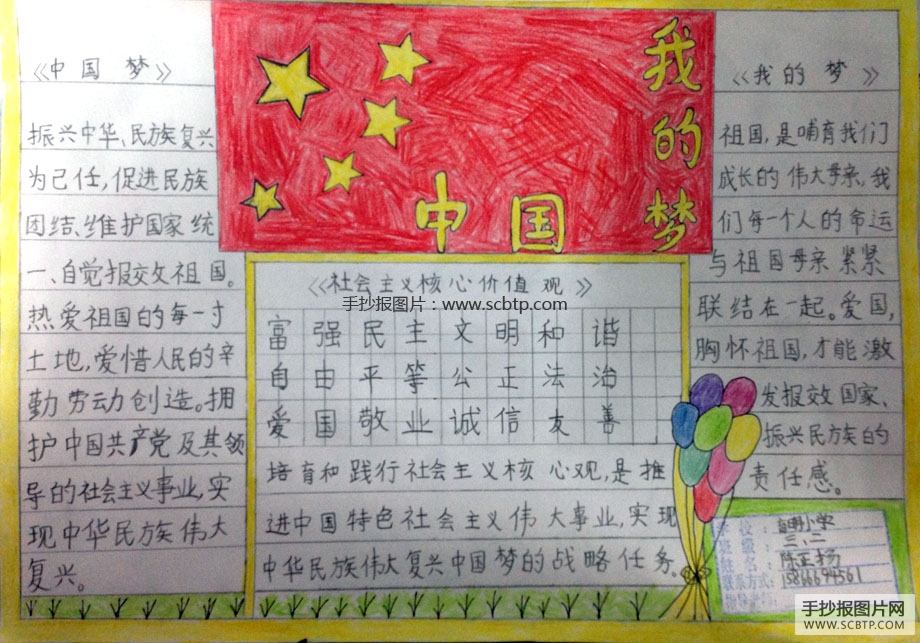 中国
我的梦
《中国 梦》
振兴中华、民族复兴
为己任,促进民族
团结、维护国家统
一、自觉报效祖国。
热爱祖国的每一寸
土地,爱惜人民的辛
勤劳动创造。拥
护中国共产党及其领
导的社会主义事业,实
现中华民族伟大
复兴。
《社会主义核心价值观》
手抄报图片:www.scbtp.com
富强民主文明和谐
自由平等公正法治
爱国敬业诚信友善
培育和践行社会主义核心观,是推
进中国特色社会主义伟大事业,实现
中华民族伟大复兴中国梦的战略任务。
《我的梦》
祖国,是哺育我们
成长的伟大母亲,我
们每一个人的命运
与祖国母亲紧紧
联结在一起。爱国,
胸怀祖国,才能激
发报效国家、
振兴民族的
责任感。
学校:小学
班级:三、二
姓名:陈正扬
联系方式:15866694561
指导老师:
手抄报图片网
WWW.SCBTP.COM